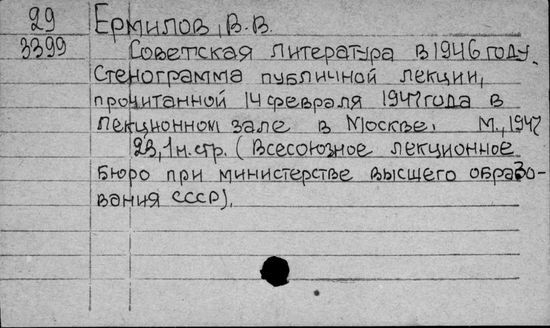 29 Ермилов, В.В.
3399 Советская литература в 1946 году.
Стенограмма публичной лекции,
прочитанной 14 февраля 1947 года в
лекционном зале в Москве. М., 1947
23, 1 н. стр. (Всесоюзное лекционное
бюро при министерстве высшего образо-
вания СССР).